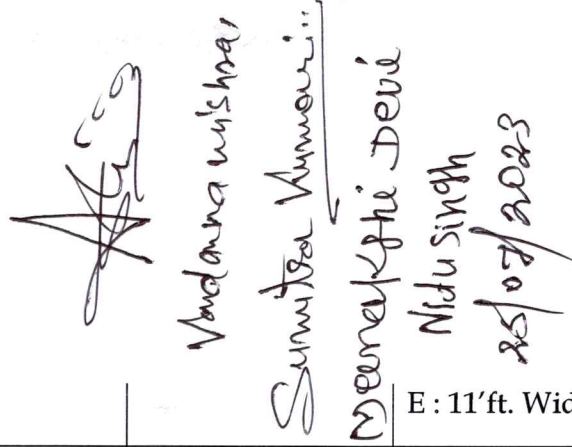 Vandanna mishra
Sumitra Kumari
Meenakshi Devi
Nitu Singh
25/07/2023
E : 11'ft. Wid